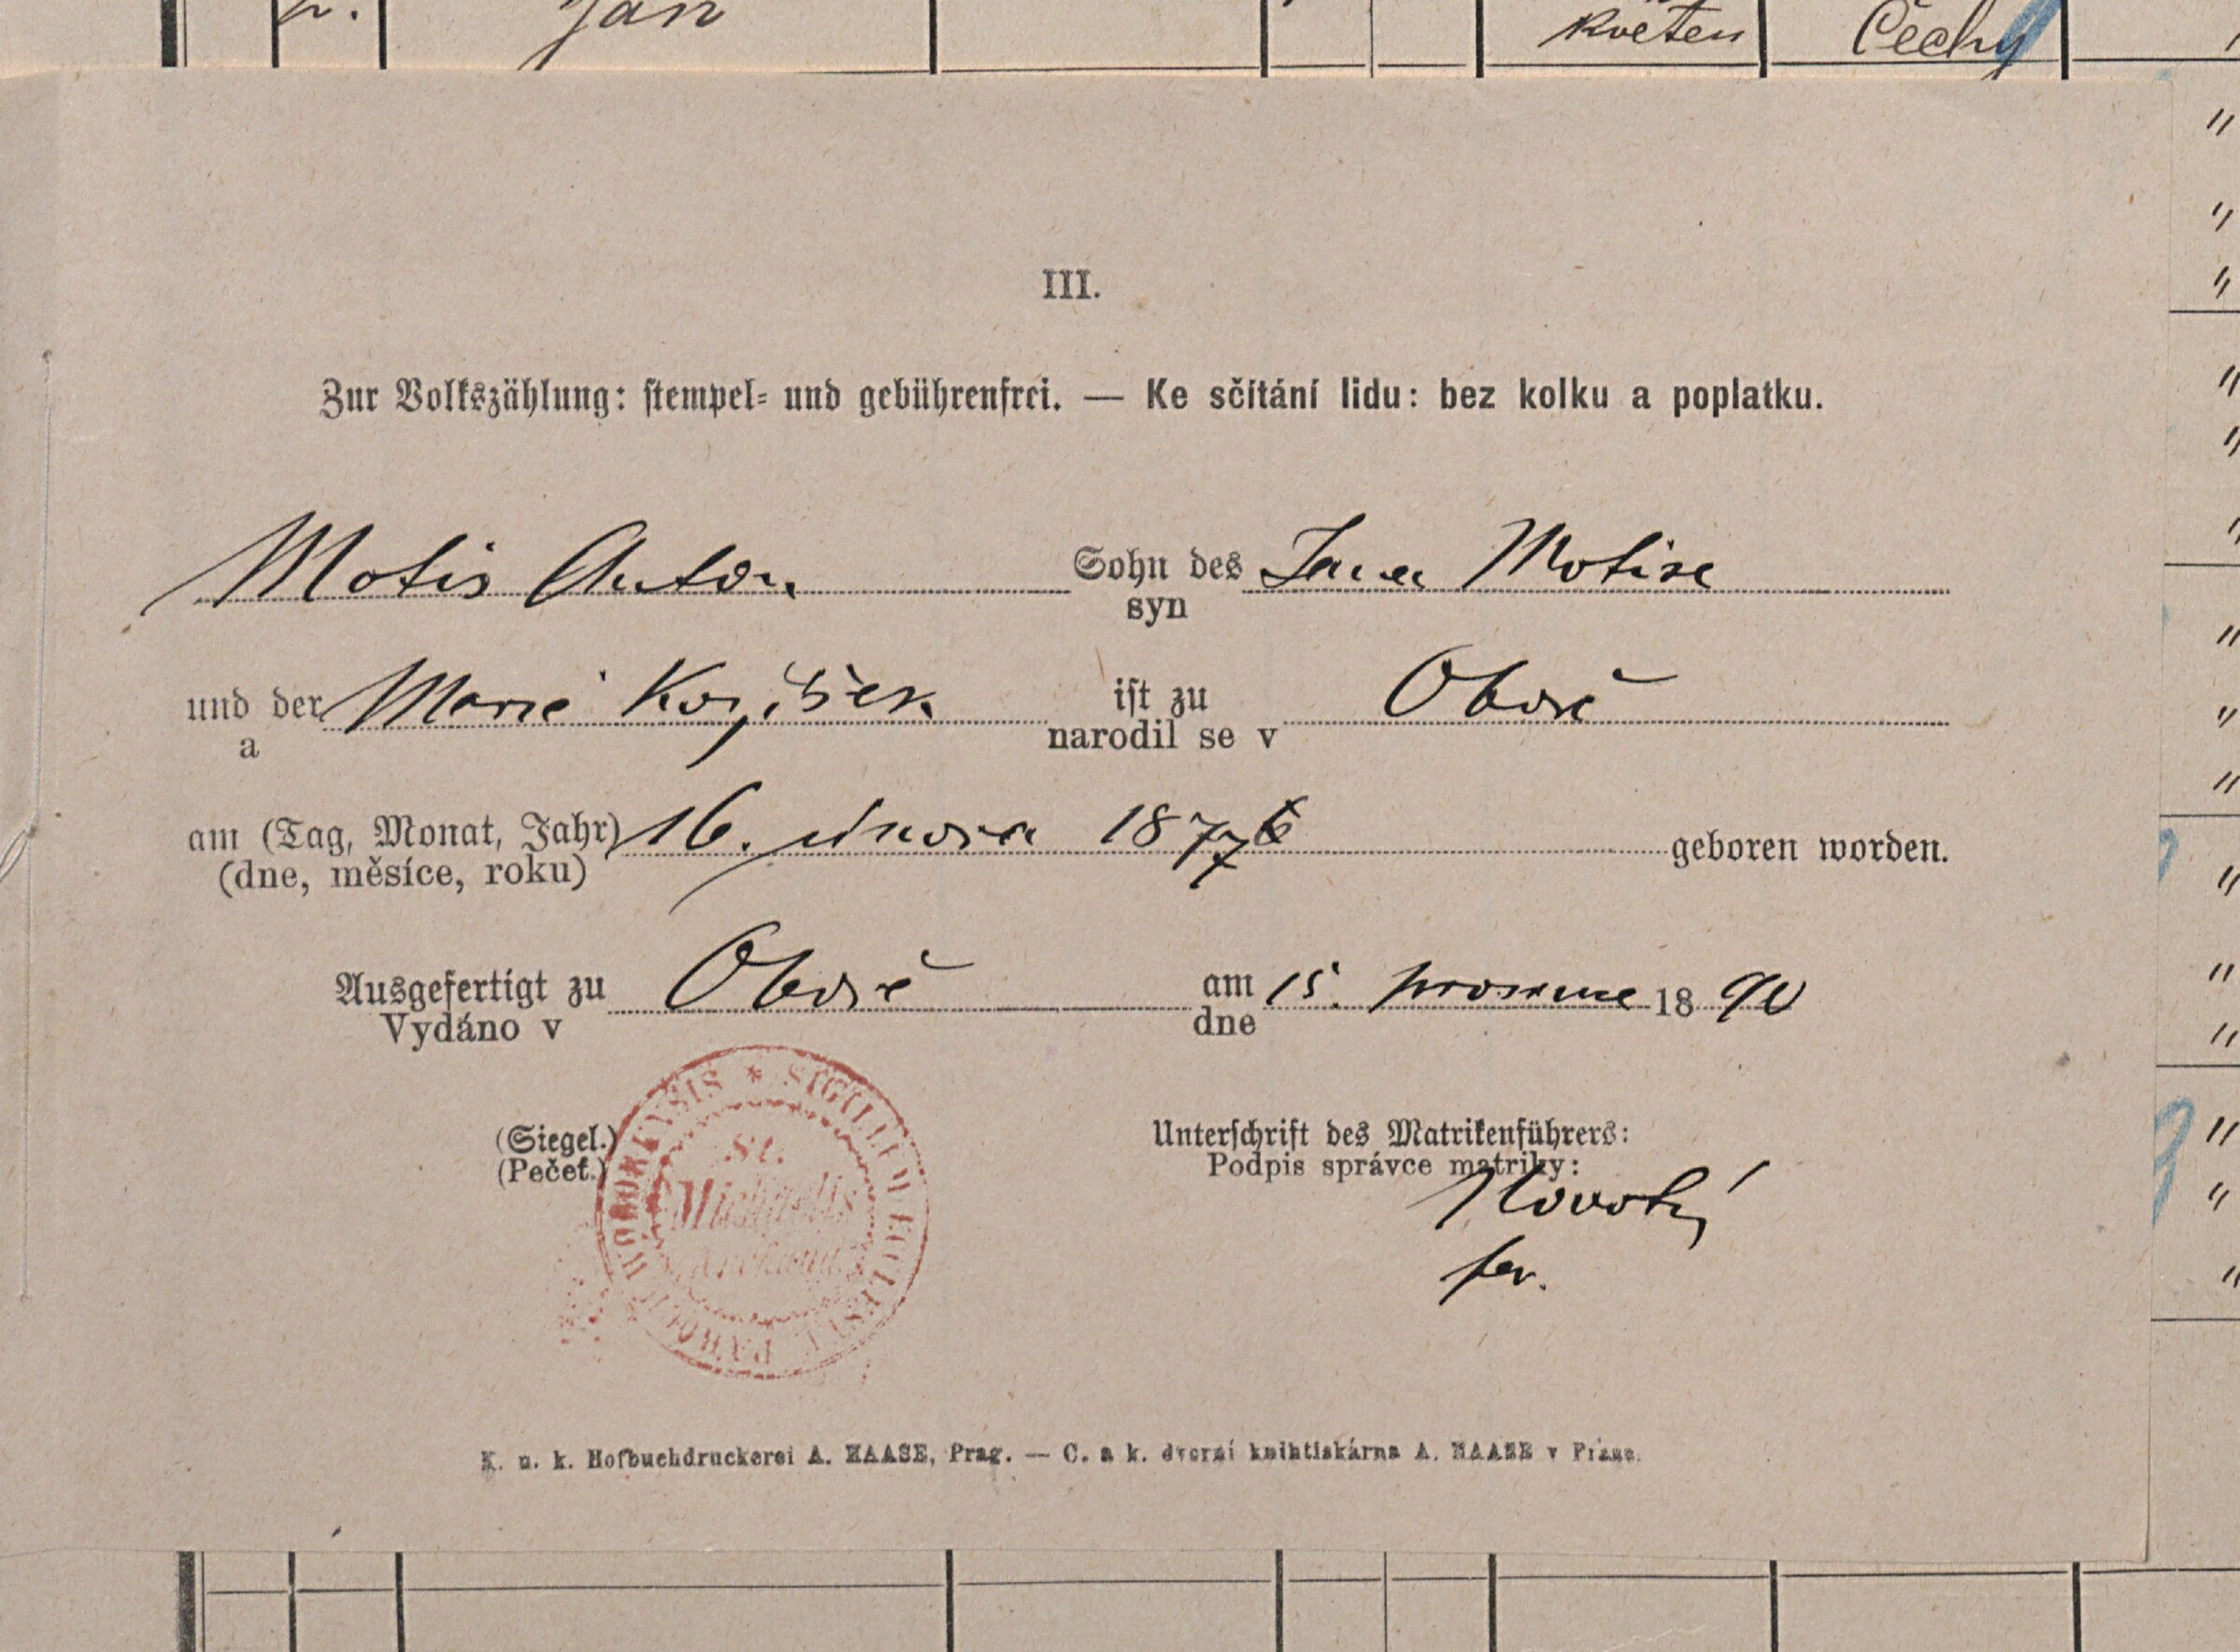 Jan květen Čechy
III.
Zur Volkszählung: stempel- und gebührenfrei. — Ke sčítání lidu: bez kolku a poplatku.
Motis Anton Sohn des Jana Motise
syn
und der Marie ist zu Oboře
a narodil se v
am (Tag, Monat, Jahr) 16. února 1877 geboren worden.
(dne, měsíce, roku)
Ausgefertigt zu Oboře am 15. prosince 1890
Vydáno v dne
(Siegel.)
(Pečeť.)
SIGILLUM ECCLESIAE PAROCH
St.
Michaelis
Archang
Unterschrift des Matrikenführers:
Podpis správce matriky:
Novotný
far.
K. u. k. Hofbuchdruckerei A. HAASE, Prag. — C. a k. dvorní knihtiskárna A. HAASE v Praze.